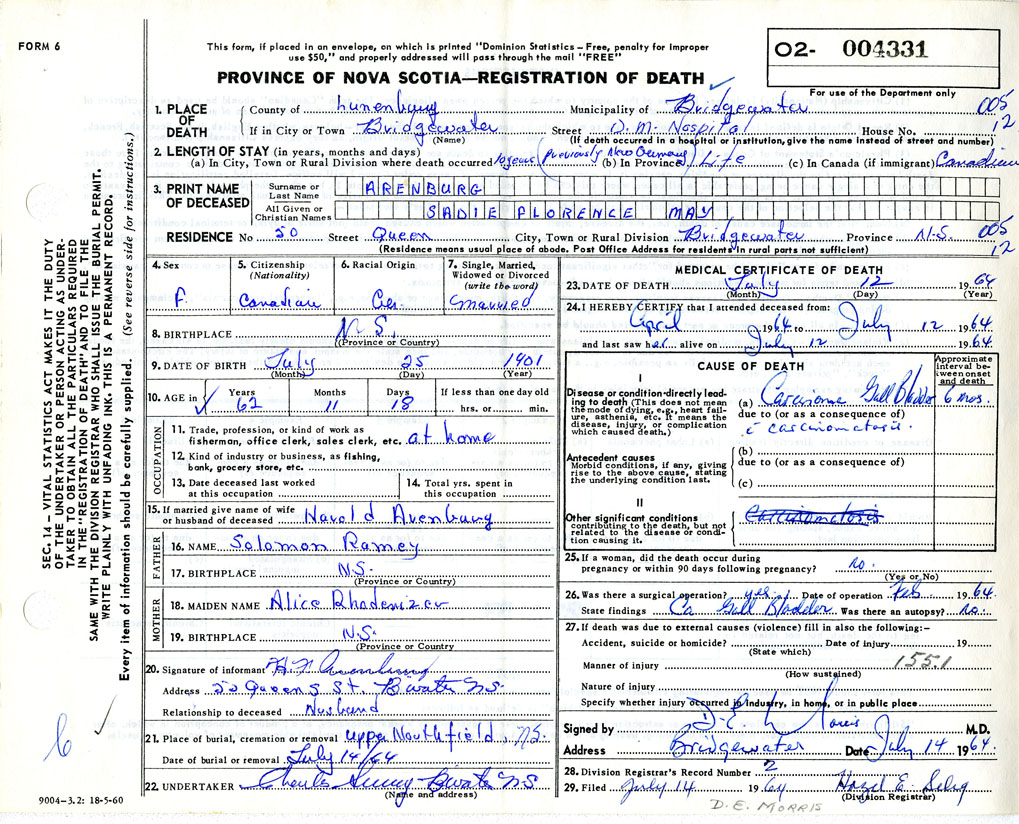 FORM 6
This form, if placed in an envelope, on which is printed "Dominion Statistics – Free, penalty for improper
use $50," and properly addressed will pass through the mail "FREE"
O2- 004331
PROVINCE OF NOVA SCOTIA—REGISTRATION OF DEATH
For use of the Department only
1. PLACE OF DEATH
County of Lunenburg Municipality of Bridgewater 005
If in City or Town Bridgewater Street D. M. Hospital House No. 12
(Name) (If death occurred in a hospital or institution, give the name instead of street and number)
2. LENGTH OF STAY (in years, months and days)
(a) In City, Town or Rural Division where death occurred 10 years (previously New Germany) (b) In Province Life (c) In Canada (if immigrant) Canadian
3. PRINT NAME OF DECEASED
Surname or Last Name ARENBURG
All Given or Christian Names SADIE FLORENCE MAY
RESIDENCE No 50 Street Queen City, Town or Rural Division Bridgewater Province N.S. 005
12
(Residence means usual place of abode. Post Office Address for residents in rural parts not sufficient)
4. Sex F.
5. Citizenship (Nationality) Canadian
6. Racial Origin Ger.
7. Single, Married, Widowed or Divorced (write the word) Married
8. BIRTHPLACE N.S.
(Province or Country)
9. DATE OF BIRTH July 25 1901
(Month) (Day) (Year)
10. AGE in Years 62 Months 11 Days 18 If less than one day old hrs. or min.
OCCUPATION
11. Trade, profession, or kind of work as
fisherman, office clerk, sales clerk, etc. at home
12. Kind of industry or business, as fishing,
bank, grocery store, etc.
13. Date deceased last worked
at this occupation
14. Total yrs. spent in
this occupation
15. If married give name of wife
or husband of deceased Harold Arenburg
FATHER
16. NAME Solomon Ramey
17. BIRTHPLACE N.S.
(Province or Country)
MOTHER
18. MAIDEN NAME Alice Rhodenizer
19. BIRTHPLACE N.S.
(Province or Country
20. Signature of informant Arenburg
Address 50 Queen S St. B'water N.S.
Relationship to deceased Husband
21. Place of burial, cremation or removal Upper Northfield N.S.
Date of burial or removal July 14/64
22. UNDERTAKER B'water N.S
(Name and address)
MEDICAL CERTIFICATE OF DEATH
23. DATE OF DEATH July 12 1964
(Month) (Day) (Year)
24. I HEREBY CERTIFY that I attended deceased from:
April 1964 to July 12 1964
and last saw her alive on July 12 1964
CAUSE OF DEATH
Approximate interval between onset and death
I
Disease or condition directly leading to death (This does not mean the mode of dying, e.g., heart failure, asthenia, etc. It means the disease, injury, or complication which caused death.)
(a) Carcinoma Gall Bladder 6 mos.
due to (or as a consequence of)
c carcinomatosis.
Antecedent causes
Morbid conditions, if any, giving rise to the above cause, stating the underlying condition last.
(b)
due to (or as a consequence of)
(c)
II
Other significant conditions
contributing to the death, but not related to the disease or condition causing it.
Carcinomatosis
25. If a woman, did the death occur during
pregnancy or within 90 days following pregnancy? no.
(Yes or No)
26. Was there a surgical operation? yes. Date of operation Feb 1964.
State findings Ca Gall Bladder Was there an autopsy? no.
27. If death was due to external causes (violence) fill in also the following:—
Accident, suicide or homicide? Date of injury 19
(State which)
Manner of injury 1551
(How sustained)
Nature of injury
Specify whether injury occurred in industry, in home, or in public place
Signed by D. E. Morris M.D.
Address Bridgewater Date July 14 1964
28. Division Registrar's Record Number 2
29. Filed July 14 1964 Hazel E.
(Division Registrar)
D. E. MORRIS
9004–3.2: 18-5-60
SEC. 14 – VITAL STATISTICS ACT MAKES IT THE DUTY
OF THE UNDERTAKER OR PERSON ACTING AS UNDER-
TAKER TO OBTAIN ALL THE PARTICULARS REQUIRED
IN THE "REGISTRATION OF DEATH" AND TO FILE THE
SAME WITH THE DIVISION REGISTRAR WHO SHALL ISSUE THE BURIAL PERMIT.
WRITE PLAINLY WITH UNFADING INK. THIS IS A PERMANENT RECORD.
Every item of information should be carefully supplied. (See reverse side for instructions.)